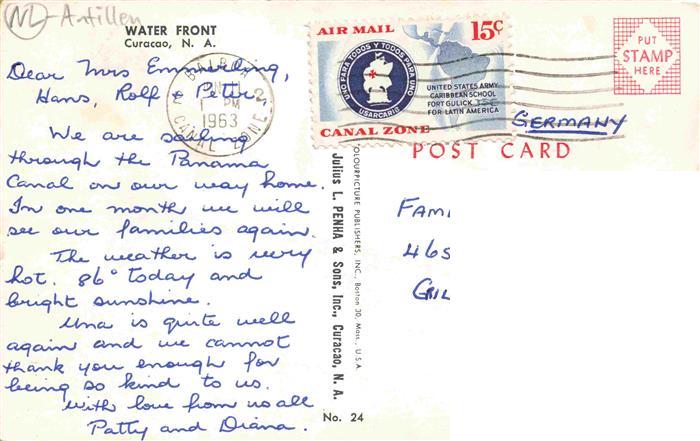 NL-Antillen
WATER FRONT
Curacao, N. A.
Dear Mrs Emmerling,
Hans, Rolf & Peter,
We are sailing
through the Panama
Canal on our way home.
In one month we will
see our families again.
The weather is very
hot. 86° today and
bright sunshine.
Una is quite well
again and we cannot
thank you enough for
being so kind to us.
With love from us all
Patty and Diana.
BALBOA
1 PM
1963
CANAL ZONE
COLOURPICTURE PUBLISHERS, INC., Boston 30, Mass., U.S.A.
Julius L. PENHA & Sons, Inc., Curacao, N. A.
No. 24
AIR MAIL 15c
UNO PARA TODOS Y TODOS PARA UNO
USARCARIB
UNITED STATES ARMY
CARIBBEAN SCHOOL
FORT GULICK
FOR LATIN AMERICA
CANAL ZONE
PUT
STAMP
HERE
GERMANY
POST CARD
FAMI
465
GRIL